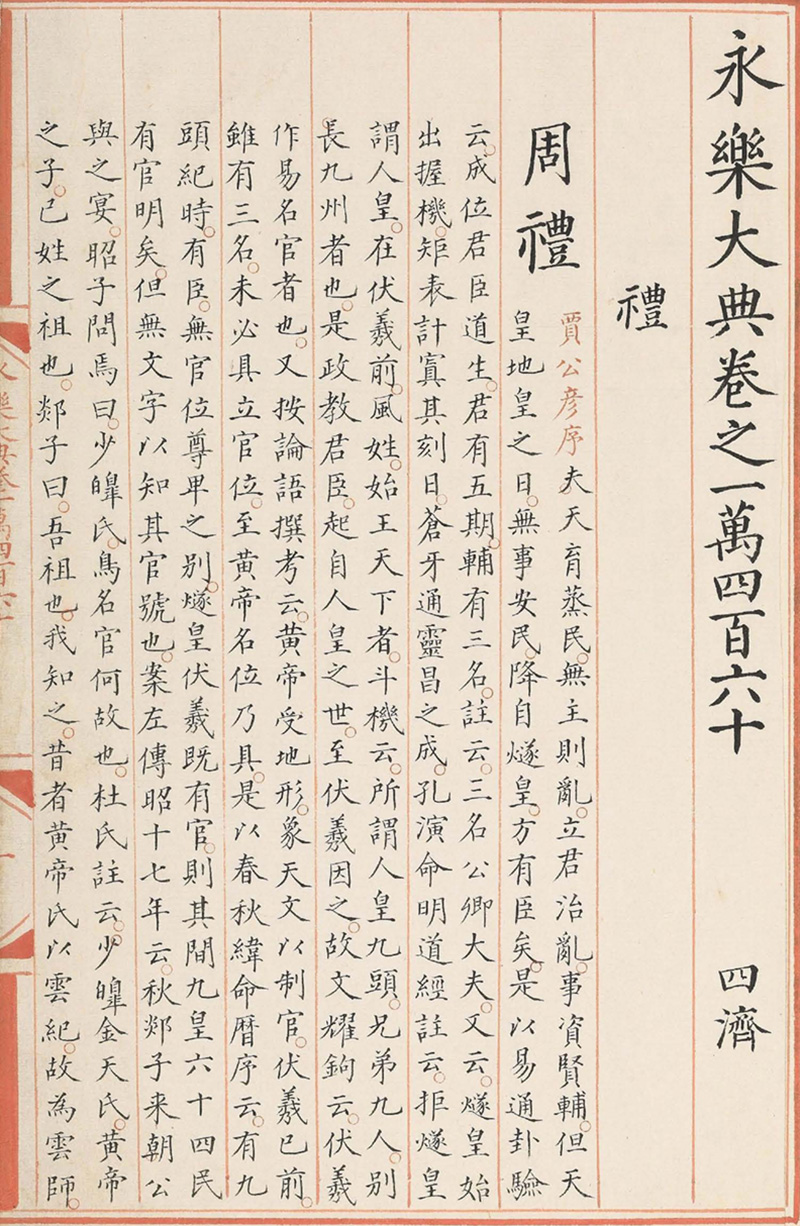 永樂大典卷之一萬四百六十　四濟
禮
周禮
賈公彥序　夫天育蒸民。無主則亂。立君治亂。事資賢輔。但天
皇地皇之日。無事安民。降自燧皇。方有臣矣。是以易通卦驗
云。成位君臣道生。君有五期。輔有三名。註云。三名公卿大夫。又云。燧皇始
出握機。矩表計寘其刻日。蒼牙通靈昌之成。孔演命明道經註云。拒燧皇
謂人皇。在伏羲前。風姓。始王天下者。斗機云。所謂人皇九頭。兄弟九人。別
長九州者也。是政教君臣。起自人皇之世。至伏羲因之。故文耀鉤云。伏羲
作易名官者也。又按論語撰考云。黃帝受地形。象天文以制官。伏羲已前。
雖有三名。未必具立官位。至黃帝名位乃具。是以春秋緯命曆序云。有九
頭紀時。有臣。無官位尊卑之別。燧皇伏羲既有官。則其間九皇六十四民
有官明矣。但無文字以知其官號也。案左傳昭十七年云。秋郯子来朝公
與之宴。昭子問焉曰。少皞氏。鳥名官何故也。杜氏註云。少皞金天氏。黃帝
之子。已姓之祖也。郯子曰。吾祖也。我知之。昔者黃帝氏以雲紀。故為雲師。